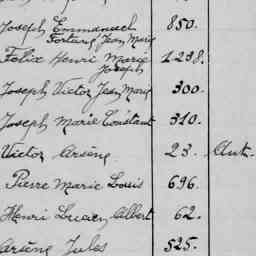 Joseph Emmanuel 850.
Fortuné Jean Marie
Félix Henri Marie 1238.
Joseph
Joseph Victor Jean Marie 300.
Joseph Marie Constant 310.
Victor Arsène 23. Ant.
Pierre Marie Louis 696.
Henri Lucien Albert 62.
Arsène Jules 525.